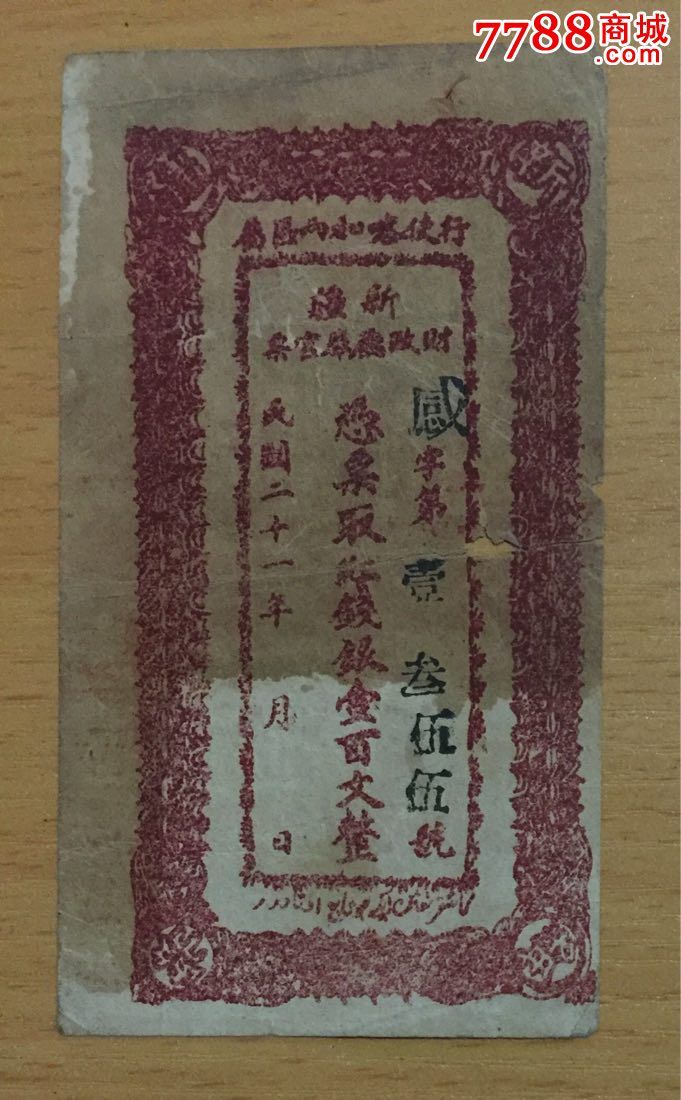 7788商城
.com
行使喀和兩區
新疆
財政廳庫官票
感字第壹叁伍伍號
憑票取紅錢銀壹百文整
民國二十一年 月 日